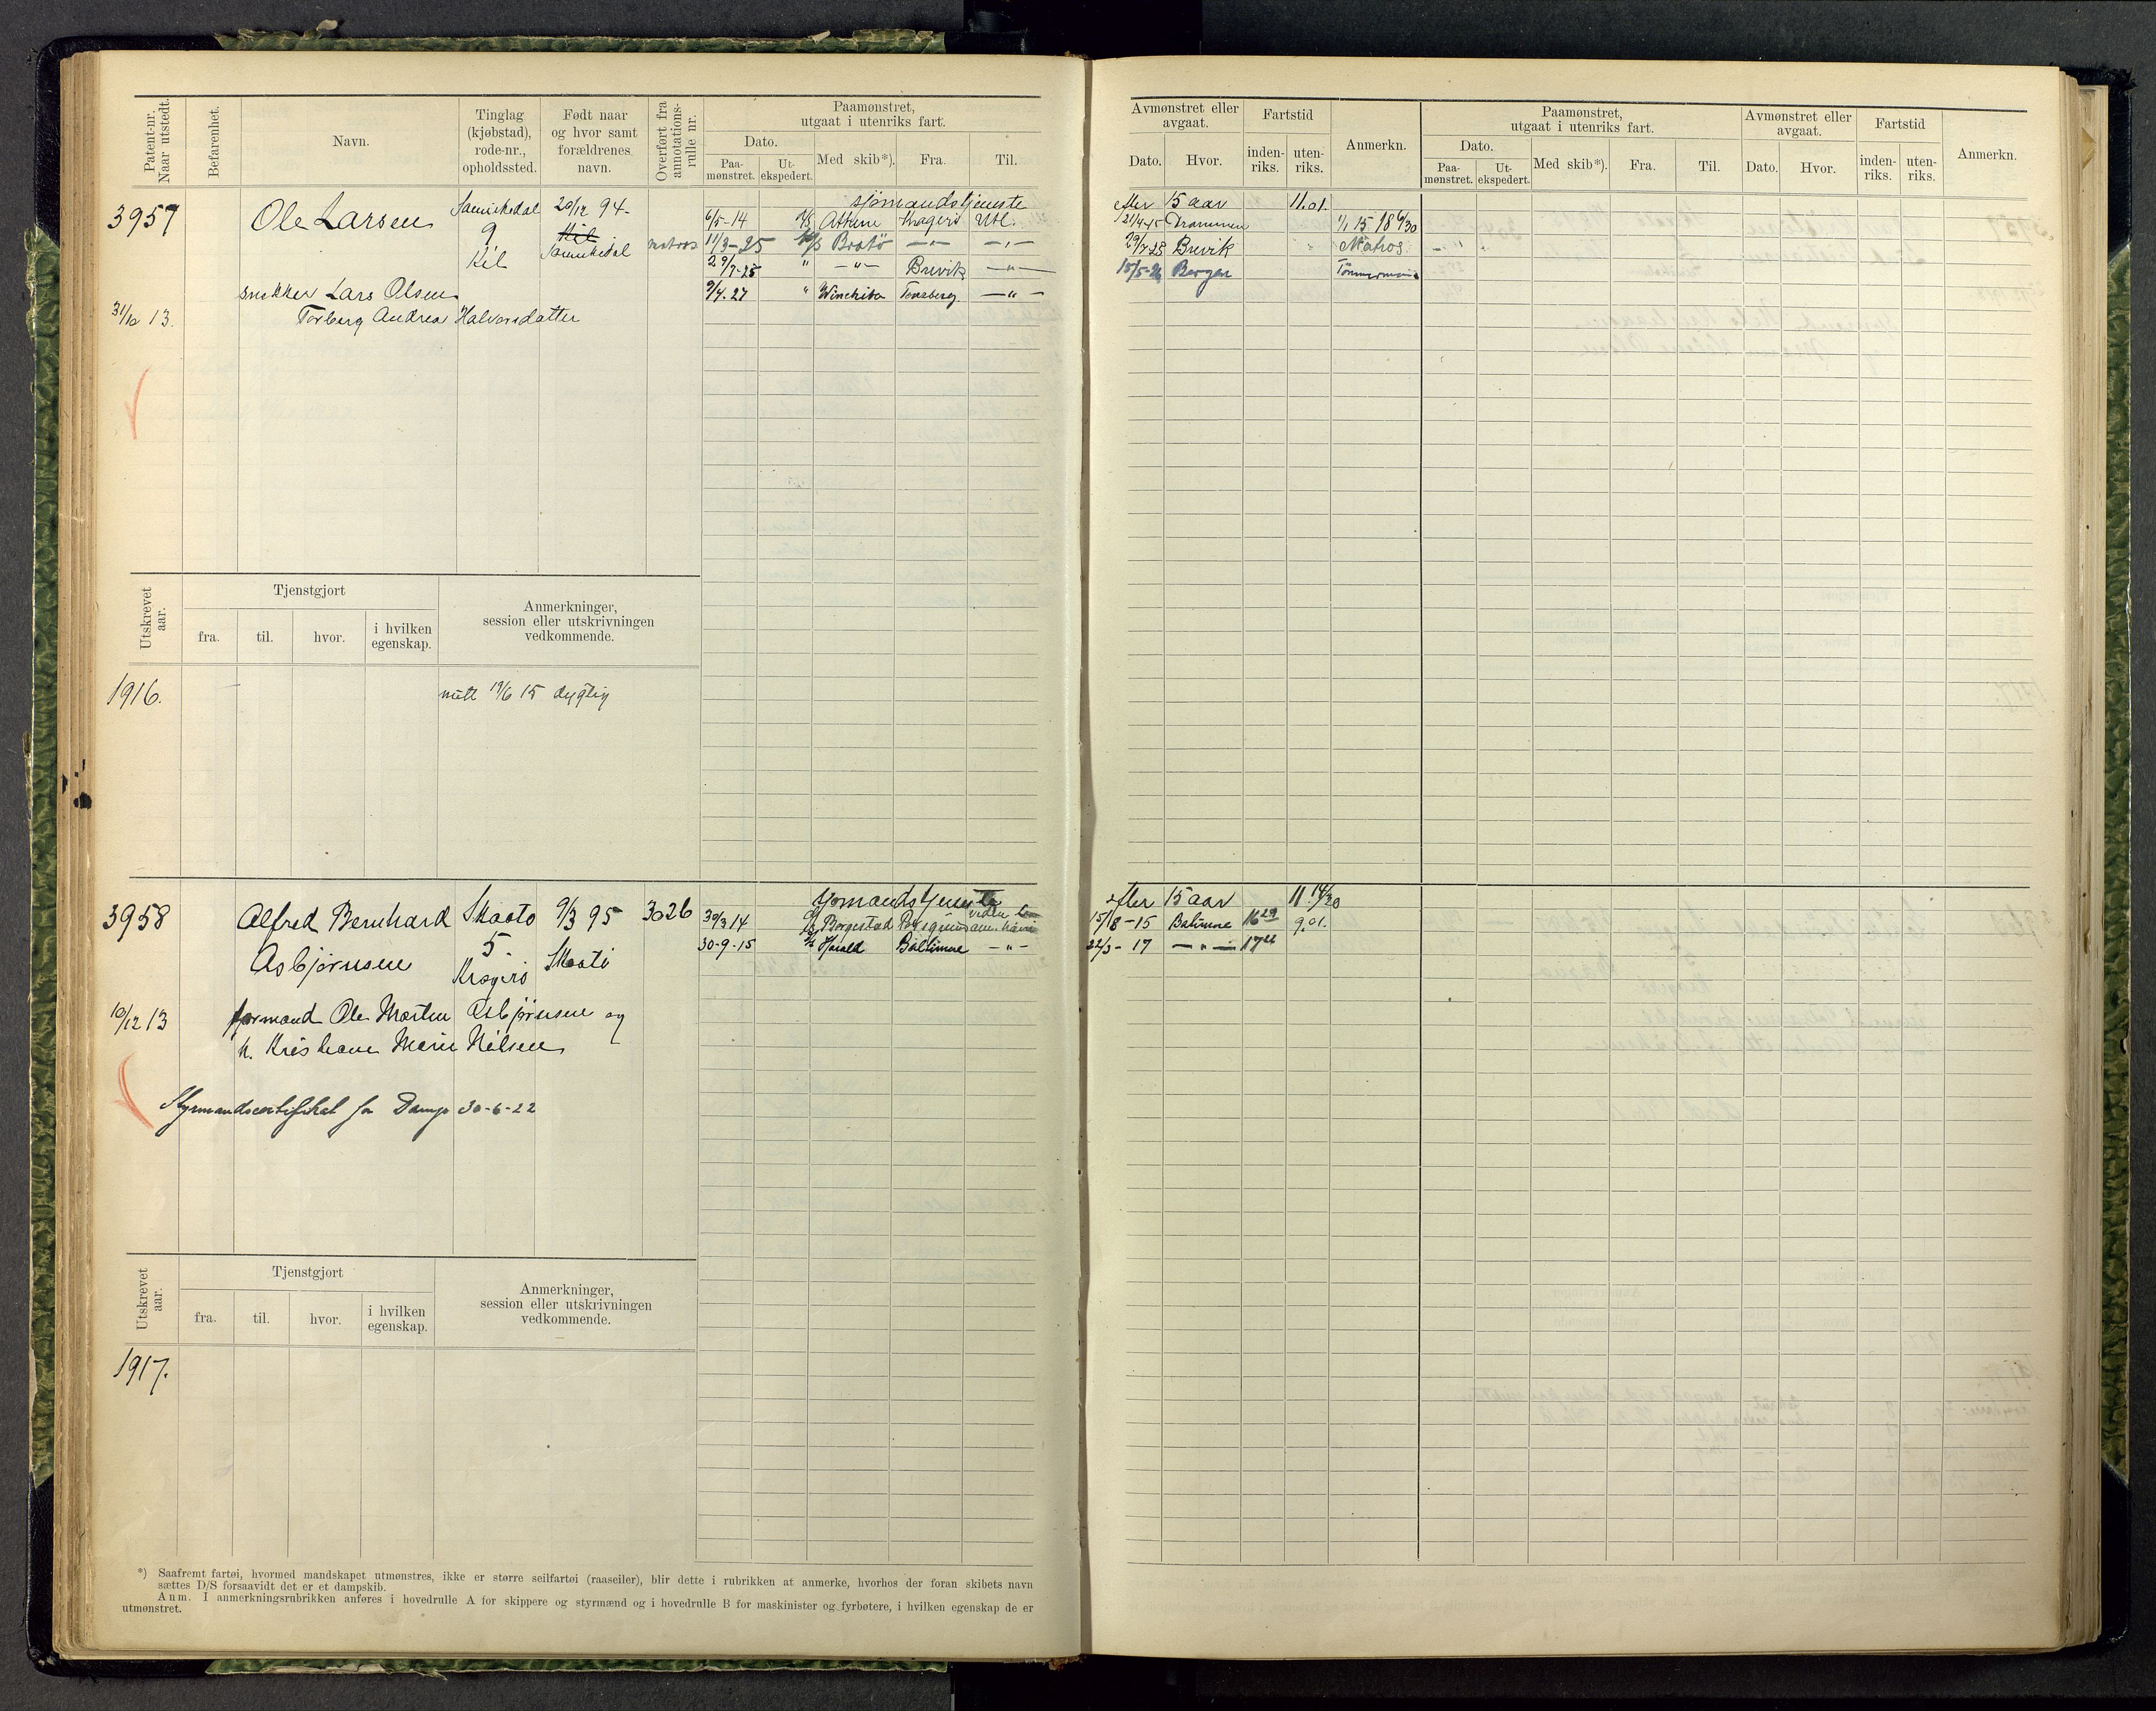 Patent-nr. Naar utstedt.
Befarenhet.
Navn.
Tinglag (kjøbstad), rode-nr., opholdssted.
Født naar og hvor samt forældrenes navn.
Overført fra annotations-rulle nr.
Paamønstret, utgaat i utenriks fart.
Dato.
Paa-mønstret.
Ut-ekspedert.
Med skib*).
Fra.
Til.
Avmønstret eller avgaat.
Dato.
Hvor.
Fartstid
inden-riks.
uten-riks.
Anmerkn.
Paamønstret, utgaat i utenriks fart.
Dato.
Paa-mønstret.
Ut-ekspedert.
Med skib*).
Fra.
Til.
Avmønstret eller avgaat.
Dato.
Hvor.
Fartstid
inden-riks.
uten-riks.
Anmerkn.
3957
Ole Larsen
Sannikedal
9
Kil
20/12 94-
Kil
Sannikedal
matros
sjømandstjeneste efter 15 aar 11.01.
6/5-14 Kragerø Utl. Drammen 1/1 15 18 6/30
11/3-25 Bratö -"- -"- 29/7-25 Brevik Matros
29/7-25 " -"- Brevik -"- 15/5-26 Bergen Tømmermand
9/4.27 " Tønsberg -"-
snekker Lars Olsen
Torborg Andrea Halvorsdatter
31/10 13.
Utskrevet aar.
Tjenstgjort
fra.
til.
hvor.
i hvilken egenskap.
Anmerkninger, session eller utskrivningen vedkommende.
1916.
mött 19/6 15 dygtig
3958
Alfred Bernhard
Asbjørnsen
Skaatø
5
Kragerø
9/3 95
Skaatø
3026
sjømandstjeneste efter 15 aar 11 14/30
30/3 14 Borgestad Porsgrund am. havn 15/8-15 Baltimore 16 29 9.01.
30-9-15 Harald Baltimore -"- 22/3-17 -"- 17
10/12 13
formand Ole Martin Asbjørnsen og
h. Kristiane Marie Nilsen
Styrmandscertifikat for Damp 30-6-22
Utskrevet aar.
Tjenstgjort
fra.
til.
hvor.
i hvilken egenskap.
Anmerkninger, session eller utskrivningen vedkommende.
1917.
*) Saafremt fartøi, hvormed mandskapet utmønstres, ikke er større seilfartøi (raaseiler), blir dette i rubrikken at anmerke, hvorhos der foran skibets navn
sættes D/S forsaavidt det er et dampskib.
Anm. I anmerkningsrubrikken anføres i hovedrulle A for skippere og styrmænd og i hovedrulle B for maskinister og fyrbøtere, i hvilken egenskap de er
utmønstret.